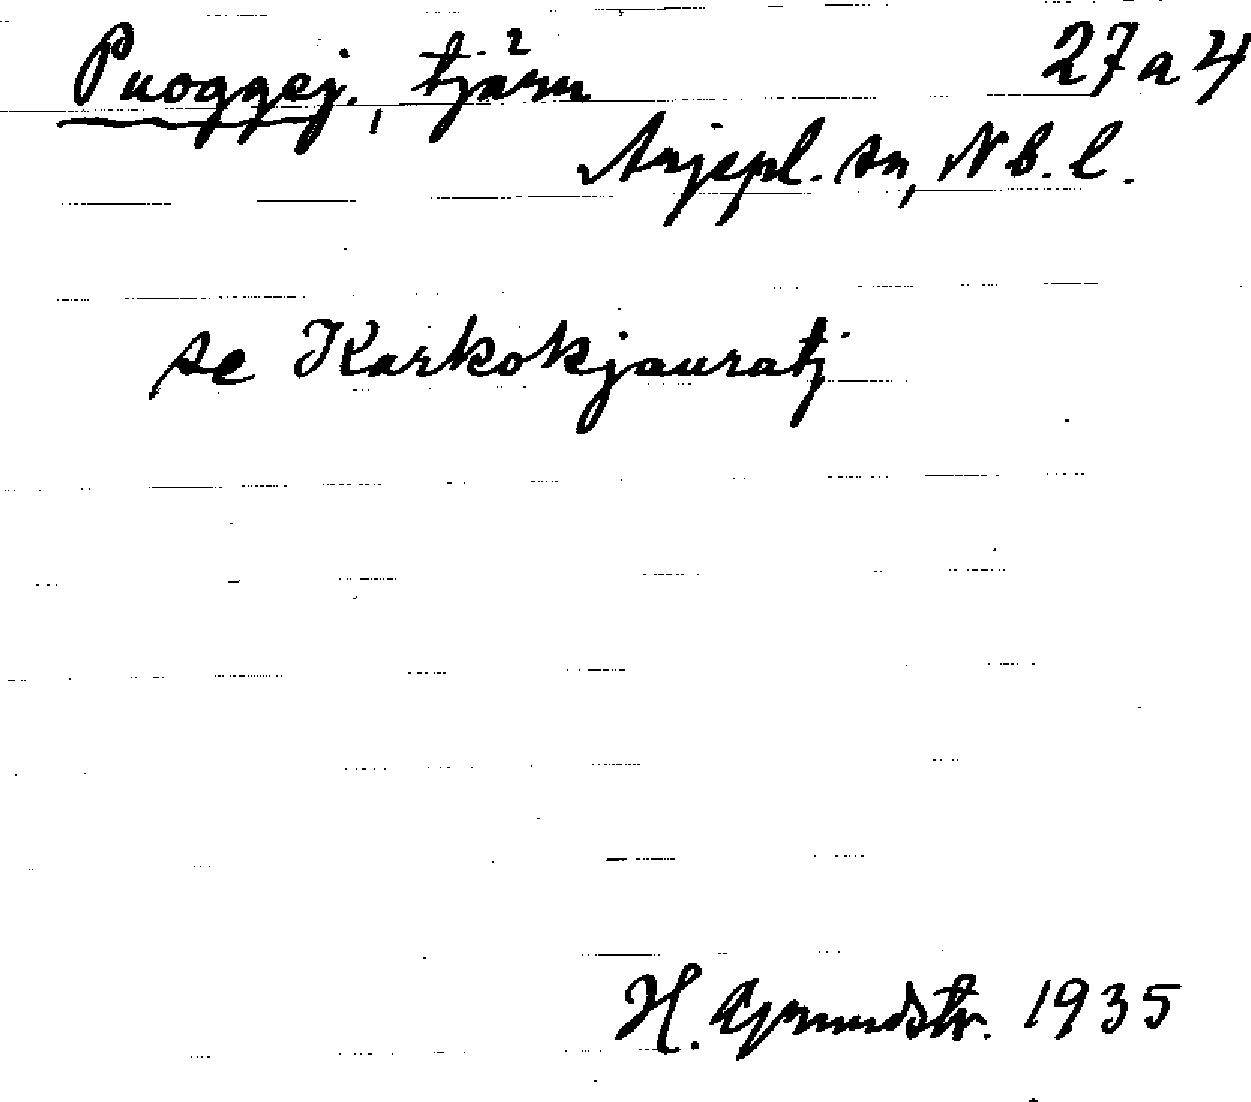 Puoggej., tjärn² 27 a 4
Arjepl. sn, N b. l.
se Karkokjauratj
H. Grundstr. 1935